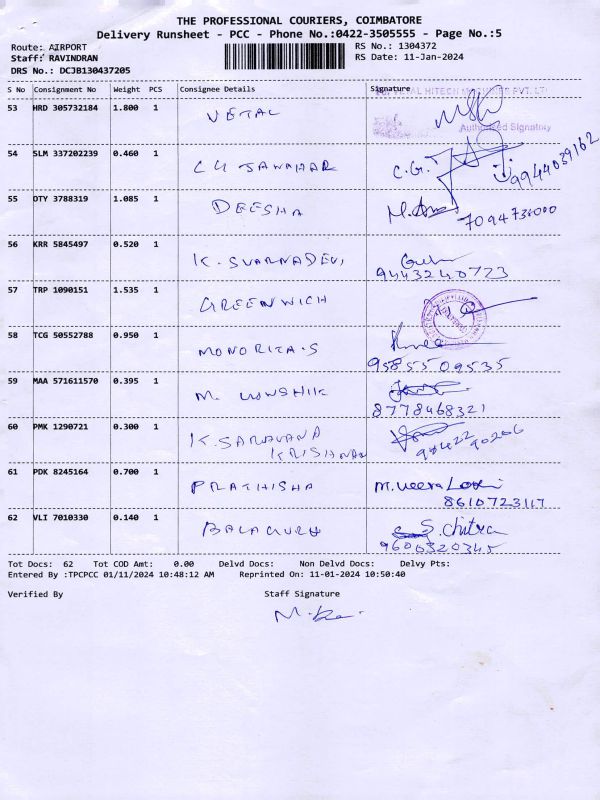 THE PROFESSIONAL COURIERS, COIMBATORE
Delivery Runsheet - PCC - Phone No.:0422-3505555 - Page No.:5
Route: AIRPORT RS No.: 1304372
Staff: RAVINDRAN RS Date: 11-Jan-2024
DRS No.: DCJB130437205
S No Consignment No Weight PCS Consignee Details Signature
HITECH PVT. LTD
53 HRD 305732184 1.800 1 VETAL
Authorised Signatory
54 SLM 337202239 0.460 1 CG JAWAHAR C.G.J 9944039162
55 DTY 3788319 1.085 1 DEESHA
7094736000
56 KRR 5845497 0.520 1 K. SVARNADEVI
9443240773
57 TRP 1090151 1.535 1 GREENWICH
58 TCG 50552788 0.950 1 MONORITA.S
9585509535
59 MAA 571611570 0.395 1 M.
8778468321
60 PMK 1290721 0.300 1 K. SARAVANA
KRISHNAN 94422 90206
61 PDK 8245164 0.700 1 PRATHISHA M. Veera
8610723117
62 VLI 7010330 0.140 1 BALAGURU S. Chitra
9600320345
Tot Docs: 62 Tot COD Amt: 0.00 Delvd Docs: Non Delvd Docs: Delvy Pts:
Entered By :TPCPCC 01/11/2024 10:48:12 AM Reprinted On: 11-01-2024 10:50:40
Verified By Staff Signature